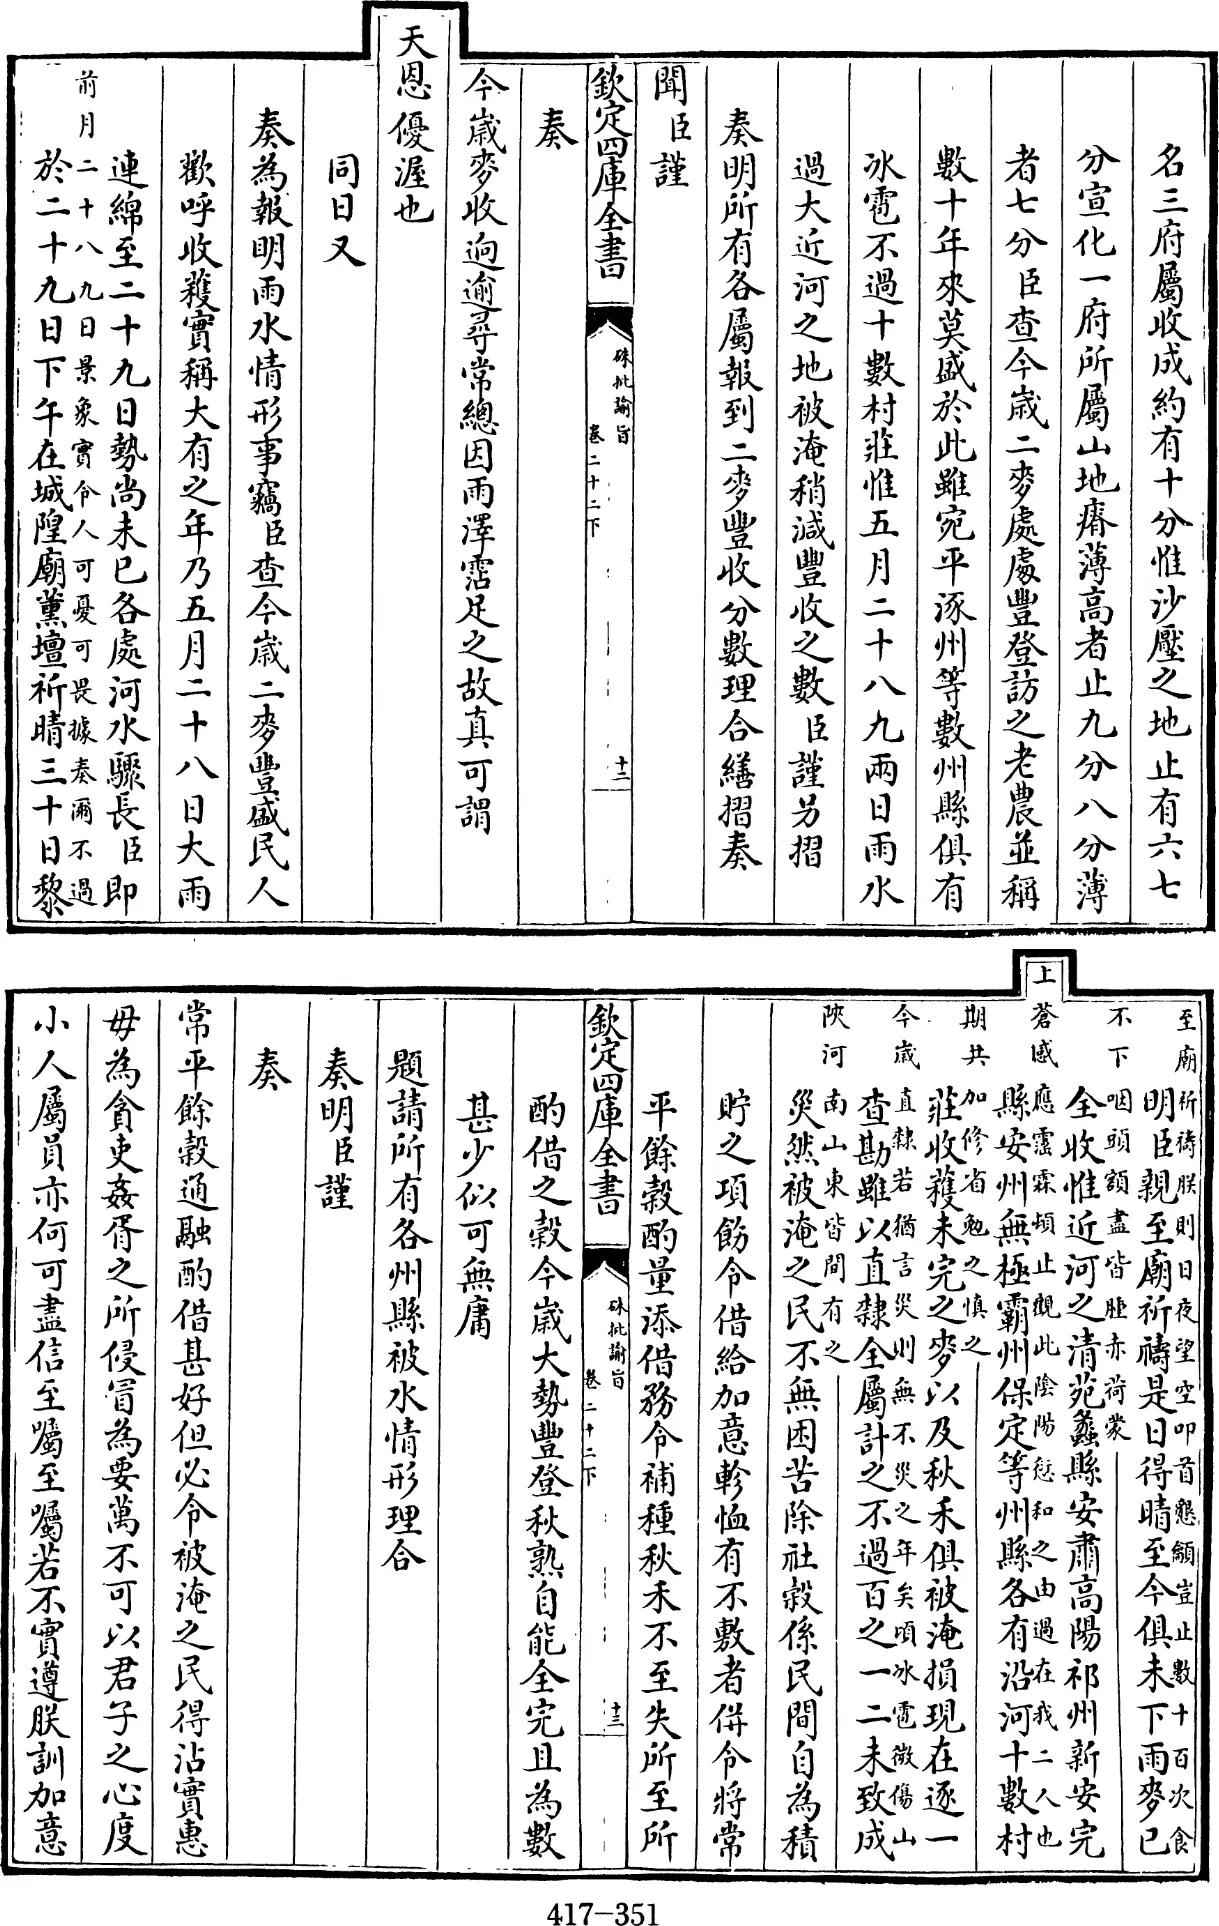 名三府屬收成約有十分惟沙壓之地止有六七
分宣化一府所屬山地瘠薄高者止九分八分薄
者七分臣查今歲二麥處處豐登訪之老農並稱
數十年來莫盛於此雖宛平涿州等數州縣俱有
冰雹不過十數村莊惟五月二十八九兩日雨水
過大近河之地被淹稍減豐收之數臣謹另摺
奏明所有各屬報到二麥豐收分數理合繕摺奏
聞臣謹
欽定四庫全書
硃批諭旨
卷二十二下
十二
奏
今歲麥收逈逾尋常總因雨澤霑足之故真可謂
天恩優渥也
同日又
奏為報明雨水情形事竊臣查今歲二麥豐盛民人
歡呼收穫實稱大有之年乃五月二十八日大雨
連綿至二十九日勢尚未已各處河水驟長臣即
前月二十八九日景象實令人可憂可畏據奏爾不過
於二十九日下午在城隍廟薰壇祈晴三十日黎
至廟祈禱朕則日夜望空叩首懇籲豈止數十百次食
明臣親至廟祈禱是日得晴至今俱未下雨麥已
不下咽頭額盡皆腫赤荷蒙
全收惟近河之清苑蠡縣安肅高陽祁州新安完
上蒼感應霪霖頓止觀此陰陽愆和之由過在我二人也
縣安州無極霸州保定等州縣各有沿河十數村
期共加修省勉之慎之
莊收穫未完之麥以及秋禾俱被淹損現在逐一
今歲直隸若猶言災則無不災之年矣頃冰雹微傷山
查勘雖以直隸全屬計之不過百之一二未致成
陝河南山東皆間有之
災然被淹之民不無困苦除社穀係民間自為積
貯之項飭令借給加意軫恤有不敷者併令將常
平餘穀酌量添借務令補種秋禾不至失所至所
欽定四庫全書
硃批諭旨
卷二十二下
十三
酌借之穀今歲大勢豐登秋熟自能全完且為數
甚少似可無庸
題請所有各州縣被水情形理合
奏明臣謹
奏
常平餘穀通融酌借甚好但必令被淹之民得沾實惠
毋為貪吏姦胥之所侵冒為要萬不可以君子之心度
小人屬員亦何可盡信至囑至囑若不實遵朕訓加意
417-351